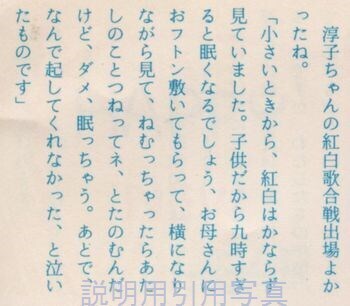 淳子ちゃんの紅白歌合戦出場よか
ったね。
「小さいときから、紅白はかならず
見ていました。子供だから九時すぎ
ると眠くなるでしょう、お母さんに
おフトン敷いてもらって、横になり
ながら見て、ねむっちゃったらあた
しのことつねってネ、とたのむんだ
けど、ダメ、眠っちゃう。あとで、
なんで起してくれなかった、と泣い
たものです」
説明用引用写真